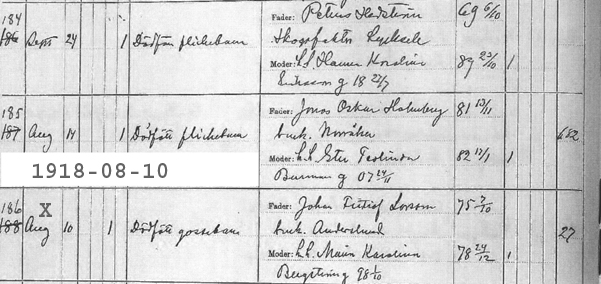 184
186 Sept 24 1 Dödfött flickebarn
Fader: Petrus Hedström 69 6/10
Skogsfaktor Lycksele
Moder: h.h. Hanna Karolina 89 23/10 1
Eriksson g 18 22/7
185
187 Aug 14 1 Dödfött flickebarn
Fader: Jonas Oskar Holmberg 81 13/11
bruk. Norråker 682
Moder: h.h. Ester Teolinda 82 17/1 1
Burman g 07 24/11
1918-08-10
186 X
188 Aug 10 1 Dödfött gossebarn
Fader: Johan Fritiof Larsson 75 7/10
bruk. Anderslund 27
Moder: h.h. Maria Karolina 78 24/12 1
Bergström g 98 1/10